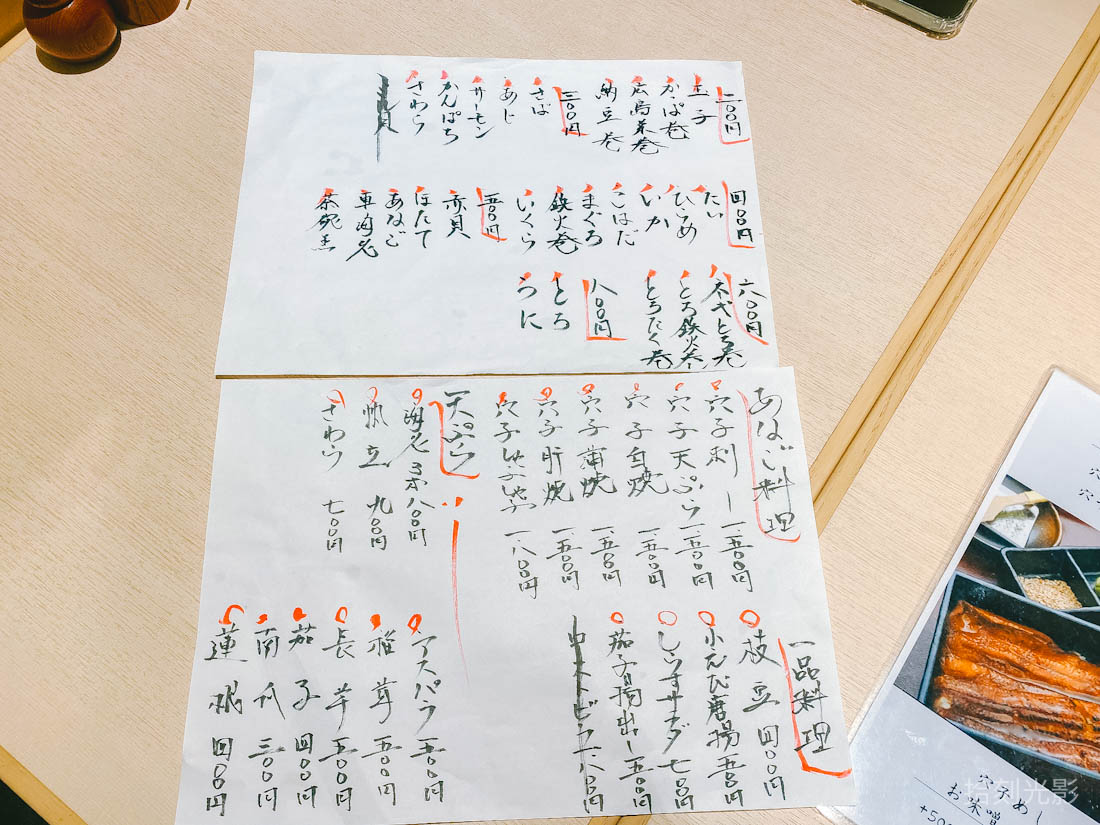 二〇〇円
玉子
かっぱ巻
広島菜巻
納豆巻
三〇〇円
さば
あじ
サーモン
かんぱち
さわら
四〇〇円
たい
ひらめ
いか
こはだ
まぐろ
鉄火巻
いくら
五〇〇円
赤貝
ほたて
あなご
車海老
茶碗蒸
六〇〇円
ネギとろ巻
とろ鉄火巻
とろたく巻
八〇〇円
とろ
うに
あなご料理
穴子刺し 一、五〇〇円
穴子天ぷら 一、五〇〇円
穴子白焼 一、五〇〇円
穴子蒲焼 一、五〇〇円
穴子肝焼 一、五〇〇円
穴子しゃぶしゃぶ 一、八〇〇円
天ぷら
海老 八〇〇円
帆立 九〇〇円
さわら 七〇〇円
一品料理
枝豆 四〇〇円
小えび唐揚 五〇〇円
七〇〇円
茄子揚出し 五〇〇円
八〇〇円
アスパラ 五〇〇円
椎茸 五〇〇円
長芋 五〇〇円
茄子 四〇〇円
南瓜 三〇〇円
蓮根 四〇〇円
穴子めし
お味噌
+50
拾刻光影